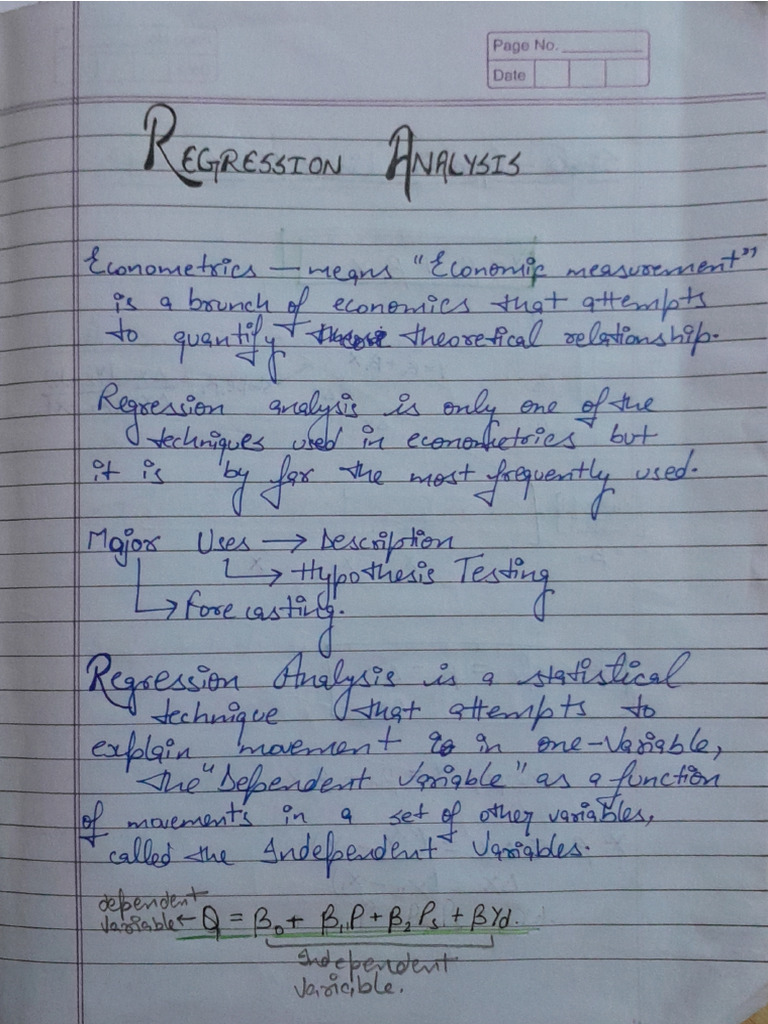 Page No.
Date
REGRESSION ANALYSIS
Econometrics — means "Economic measurement"
is a brunch of economics that attempts
to quantify theoretical relationship.
Regression analysis is only one of the
techniques used in econometrics but
it is by far the most frequently used.
Major Uses → Description
→ Hypothesis Testing
→ Forecasting.
Regression Analysis is a statistical
technique that attempts to
explain movement in one-variable,
the "Dependent Variable" as a function
of movements in a set of other variables,
called the Independent Variables.
dependent
variable ← Q = β₀ + β₁P + β₂Ps + βYd.
Independent
variable.